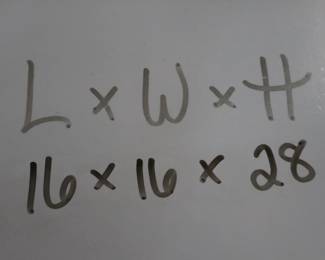 L x W x H
16 x 16 x 28